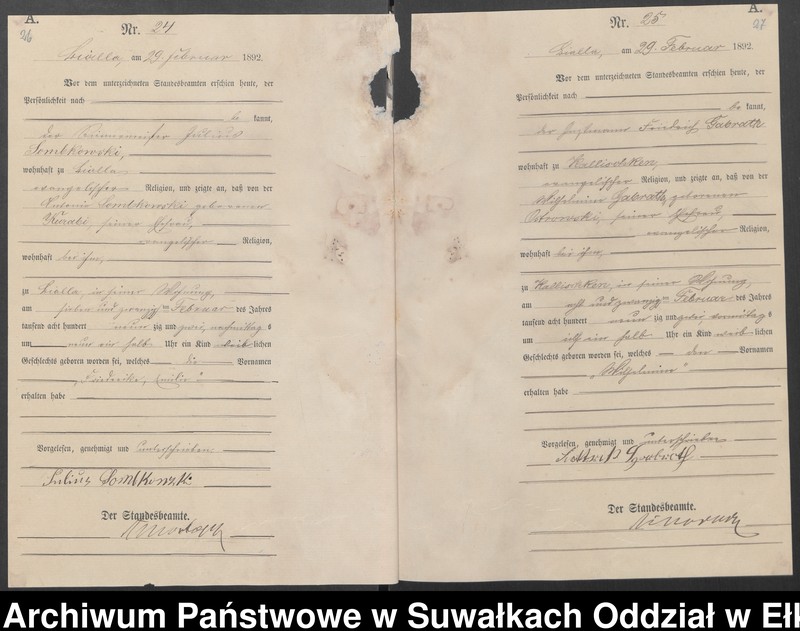 A.
26
Nr. 24
Bialla, am 29. Februar 1892.
Vor dem unterzeichneten Standesbeamten erschien heute, der
Persönlichkeit nach
be kannt,
der Julius
Sombkowski,
wohnhaft zu Bialla
evangelischer Religion, und zeigte an, daß von der
Sombkowski geborenen
seiner Ehefrau,
evangelischer Religion,
wohnhaft bei ihm,
zu Bialla, in seiner Wohnung,
am sieben und zwanzig ten Februar des Jahres
tausend acht hundert neun zig und zwei, nachmittag s
um neun ein halb Uhr ein Kind weib lichen
Geschlechts geboren worden sei, welches die Vornamen
„Friederike, Emilie“
erhalten habe
Vorgelesen, genehmigt und unterschrieben
Julius Sombkowski
Der Standesbeamte.
A.
27
Nr. 25
Bialla, am 29. Februar 1892.
Vor dem unterzeichneten Standesbeamten erschien heute, der
Persönlichkeit nach
be kannt,
der Friedrich Gabrath
wohnhaft zu Kallischken,
evangelischer Religion, und zeigte an, daß von der
Wilhelmine Gabrath, geborenen
Ostrowski, seiner Ehefrau,
evangelischer Religion,
wohnhaft bei ihm,
zu Kallischken, in seiner Wohnung,
am acht und zwanzig ten Februar des Jahres
tausend acht hundert neun zig und zwei vormittag s
um ein halb Uhr ein Kind weib lichen
Geschlechts geboren worden sei, welches den Vornamen
„Wilhelmine“
erhalten habe
Vorgelesen, genehmigt und unterschrieben
Der Standesbeamte.
Archiwum Państwowe w Suwałkach Oddział w Ełk